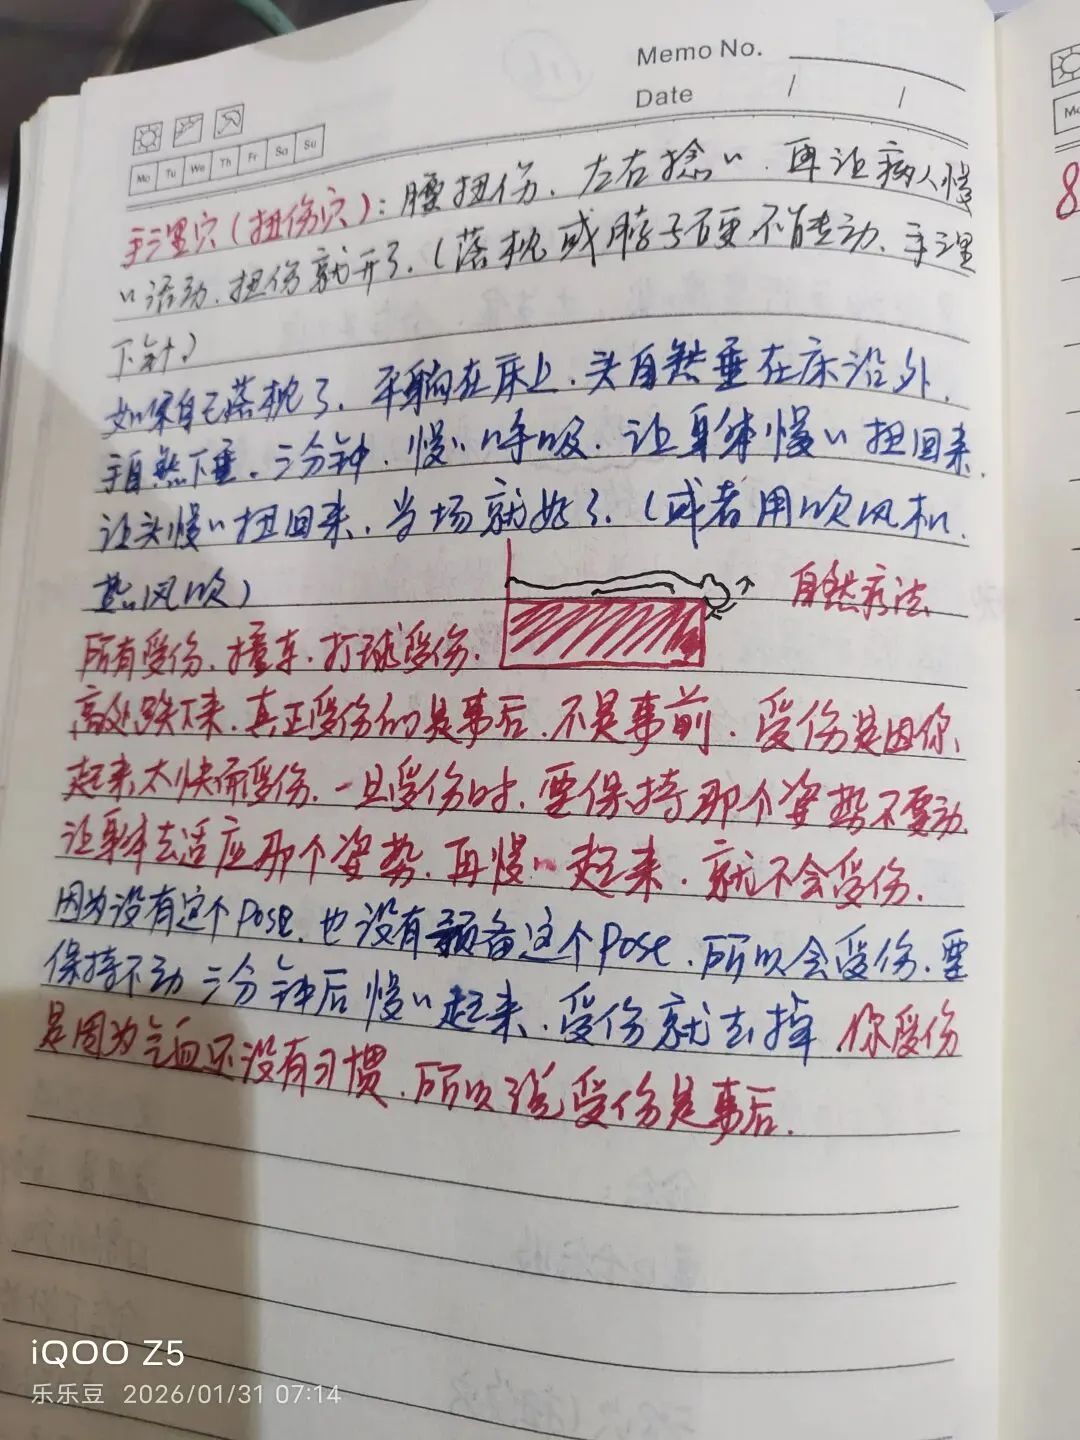 Memo No.
Date / /
Mo Tu We Th Fr Sa Su
手三里穴(扭伤穴): 腰扭伤、左右捻〃、再让病人慢
〃活动、扭伤就开了.(落枕或脖子硬不能转动、手三里
下针)
如果自己落枕了、平躺在床上、头自然垂在床沿外、
手自然下垂、三分钟、慢〃呼吸、让身体慢〃扭回来、
让头慢〃扭回来、当场就好了.(或者用吹风机、
热风吹)
自然疗法
所有受伤、撞车、打球受伤、
高处跌下来、真正受伤的是事后、不是事前、受伤是因你、
起来太快而受伤、一旦受伤时、要保持那个姿势不要动、
让身体去适应那个姿势、再慢〃起来、就不会受伤.
因为没有这个Pose、也没有预备这个Pose、所以会受伤、要
保持不动三分钟后慢〃起来、受伤就去掉 你受伤
是因为气血还没有习惯、所以说受伤是事后.
8
iQOO Z5
乐乐豆 2026/01/31 07:14